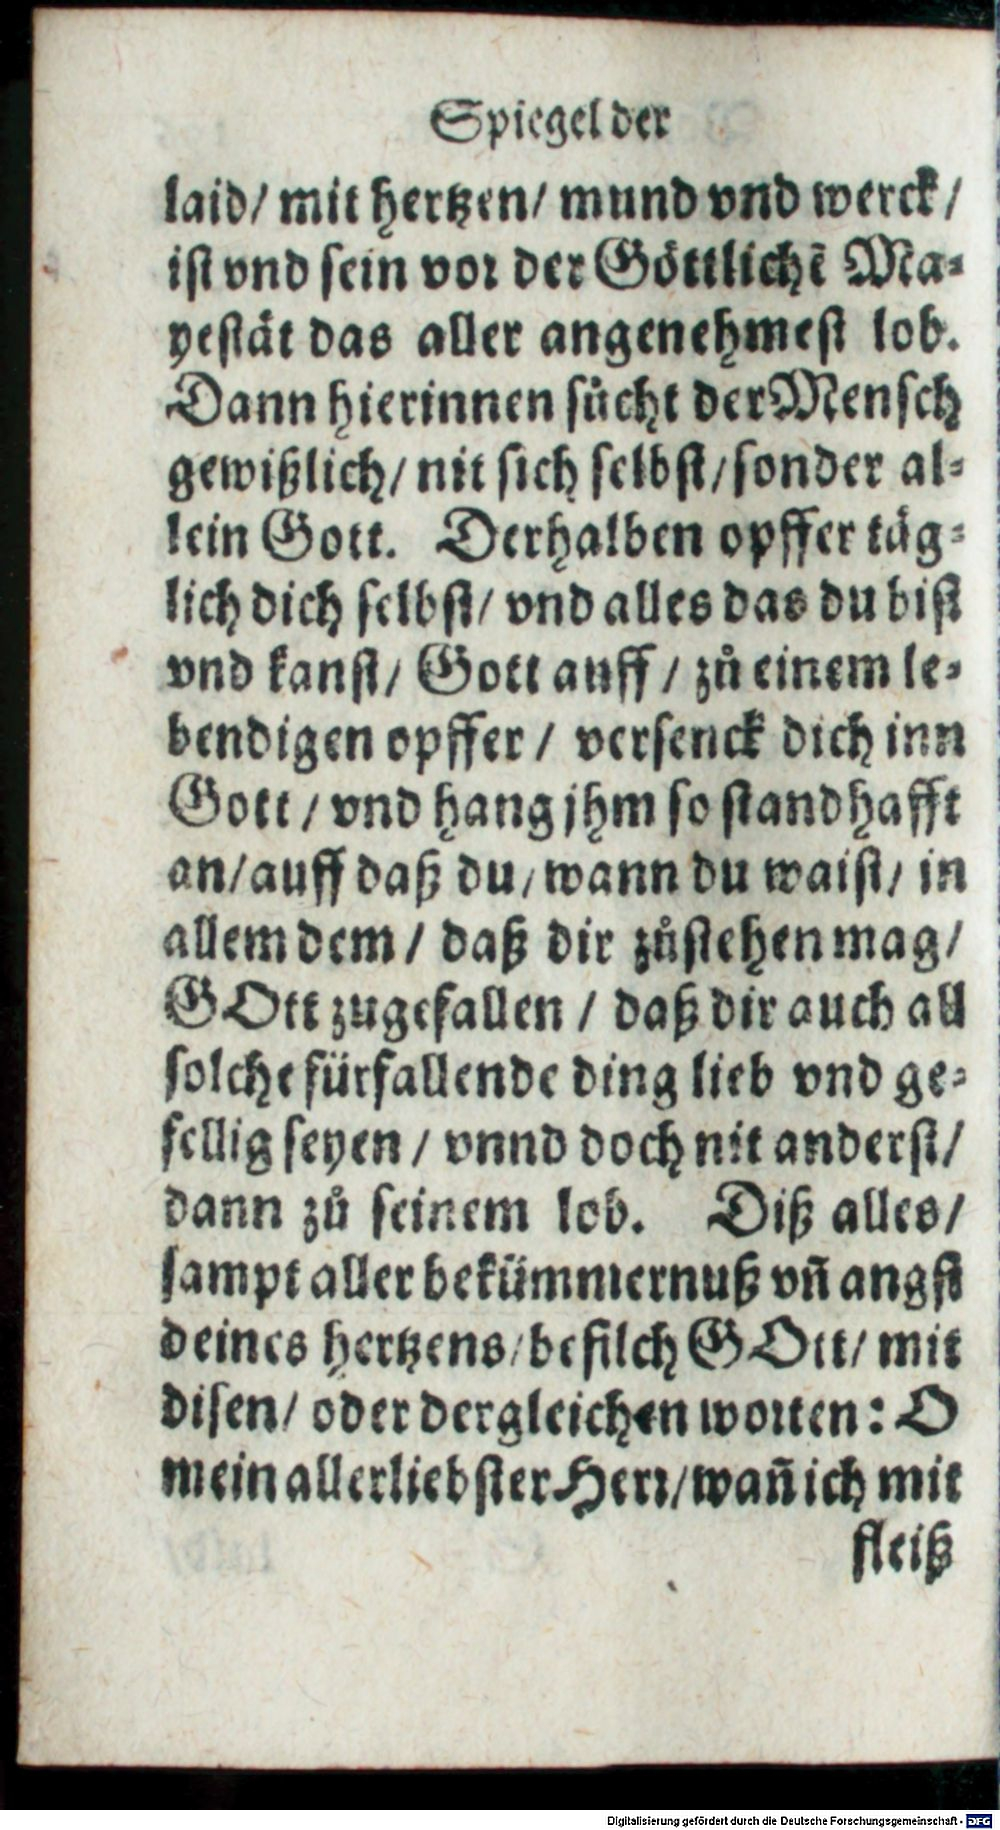 Spiegel der
laid/ mit hertzen/ mund vnd werck/
ist vnd sein vor der Göttlichẽ Ma-
yestät das aller angenehmest lob.
Dann hierinnen sůcht der Mensch
gewißlich/ nit sich selbst/ sonder al-
lein Gott. Derhalben opffer täg-
lich dich selbst/ vnd alles das du bist
vnd kanst/ Gott auff/ zů einem le-
bendigen opffer/ versenck dich inn
Gott/ vnd hang jhm so standhafft
an/ auff daß du/ wann du waist/ in
allem dem/ daß dir zůstehen mag/
GOtt zugefallen/ daß dir auch all
solche fürfallende ding lieb vnd ge-
fellig seyen/ vnnd doch nit anderst/
dann zů seinem lob. Diß alles/
sampt aller bekümmernuß vñ angst
deines hertzens/ befilch GOtt/ mit
disen/ oder dergleichen worten: O
mein allerliebster Herr/ wañ ich mit
fleiß
Digitalisierung gefördert durch die Deutsche Forschungsgemeinschaft - DFG